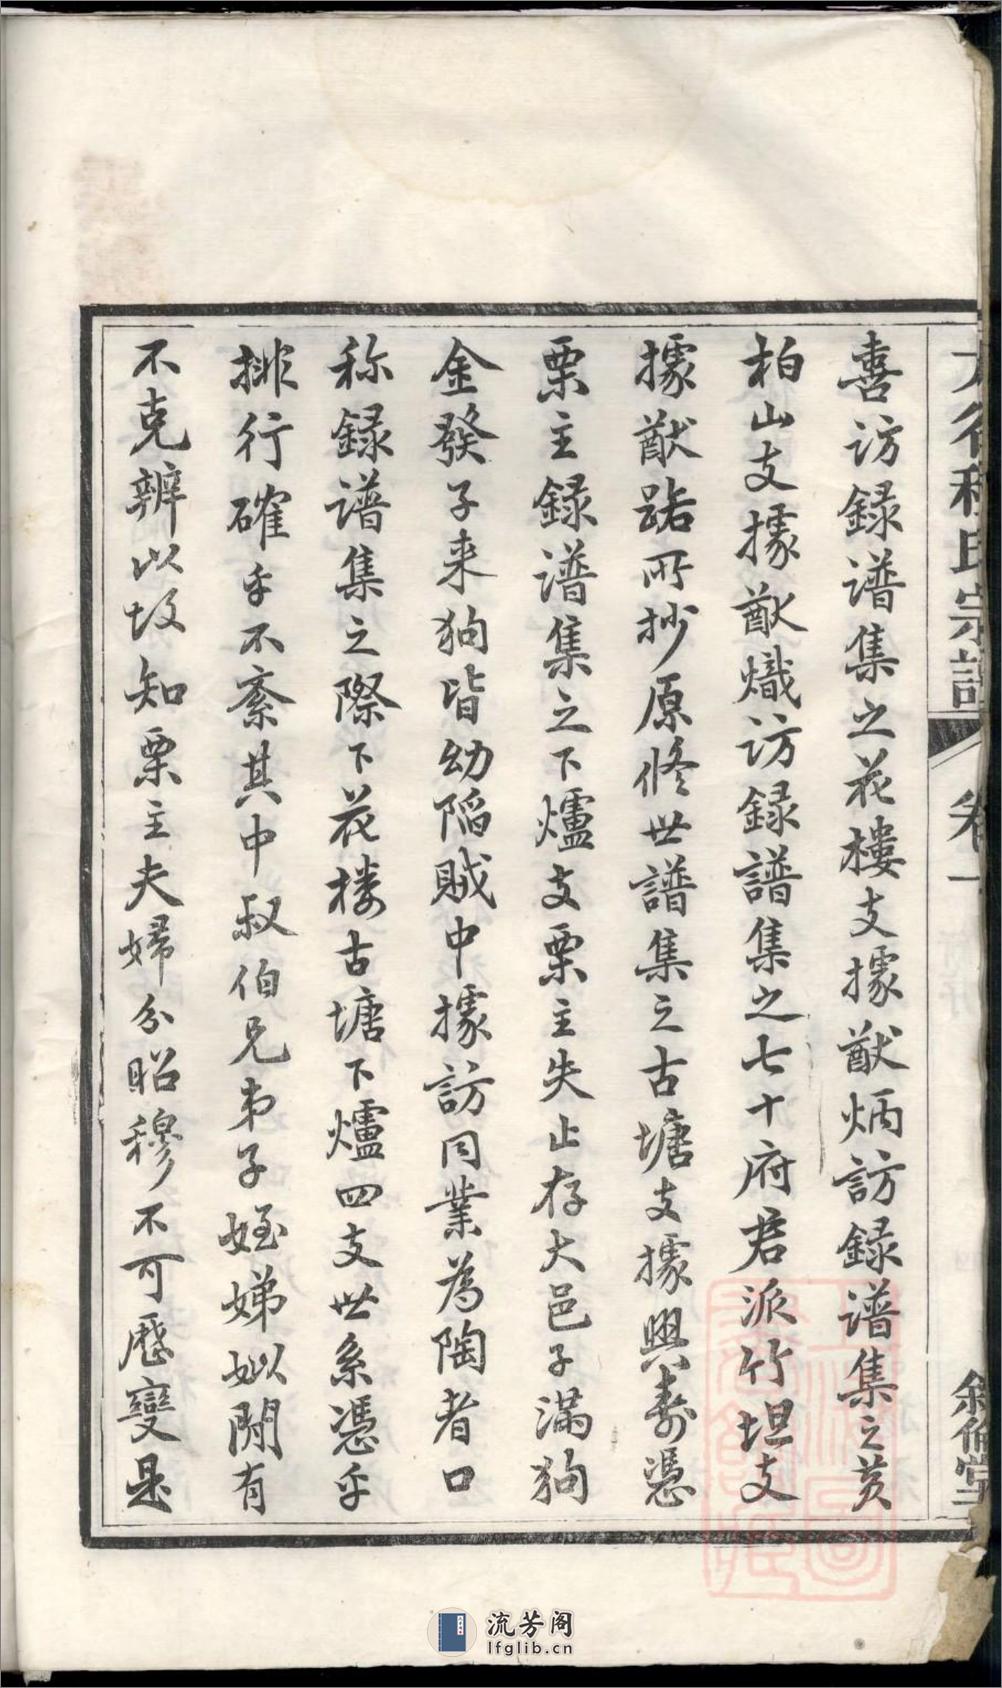 喜访録谱集之花樓支據猷炳訪録谱集之黃
柏山支據猷熾访録譜集之七十府君派竹坦支
據猷踮所抄原修世譜集之古塘支據興壽憑
栗主録谱集之下爐支栗主失止存大邑子滿狗
金發子来狗皆幼陷賊中據訪同業為陶者口
称録谱集之際下花楼古塘下爐四支世系憑乎
排行確乎不紊其中叔伯兄弟子姪娣姒間有
不克辨以故知栗主夫婦分昭穆不可歷變是
程氏宗譜
卷一
叙倫堂
流芳阁
lfglib.cn